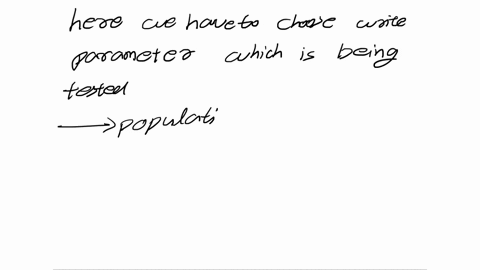 here we have to choose write
parameter which is being
tested
→ populati